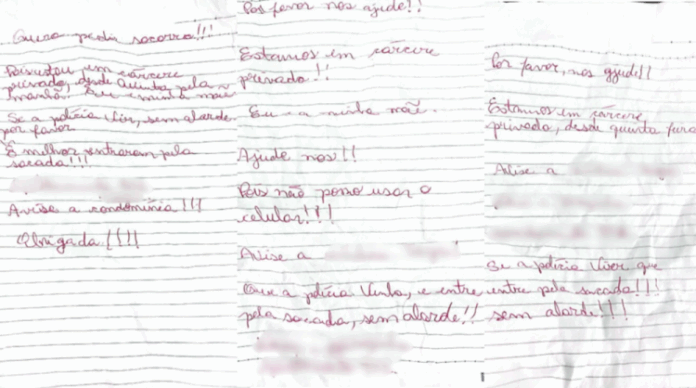 Quero pedir socorro!!!
Pois estou em cárcere
privado, desde Quinta pela
manhã. Eu e minha mãe
Se a polícia Vier, sem alarde
por favor
É melhor entrarem pela
sacada!!!
Avise a condominia!!!
Obrigada!!!!
Por favor nos ajude!!
Estamos em cárcere
privado!!
Eu e a minha mãe.
Ajude nos!!
Pois não posso usar o
celular!!!
Avise a
Que a polícia Venha, e entre
pela sacada, sem alarde!!
Por favor, nos ajude!!
Estamos em cárcere
privado, desde quinta feira
Avise a
Se a polícia Vier que
entre pela sacada!!!
sem alarde!!!